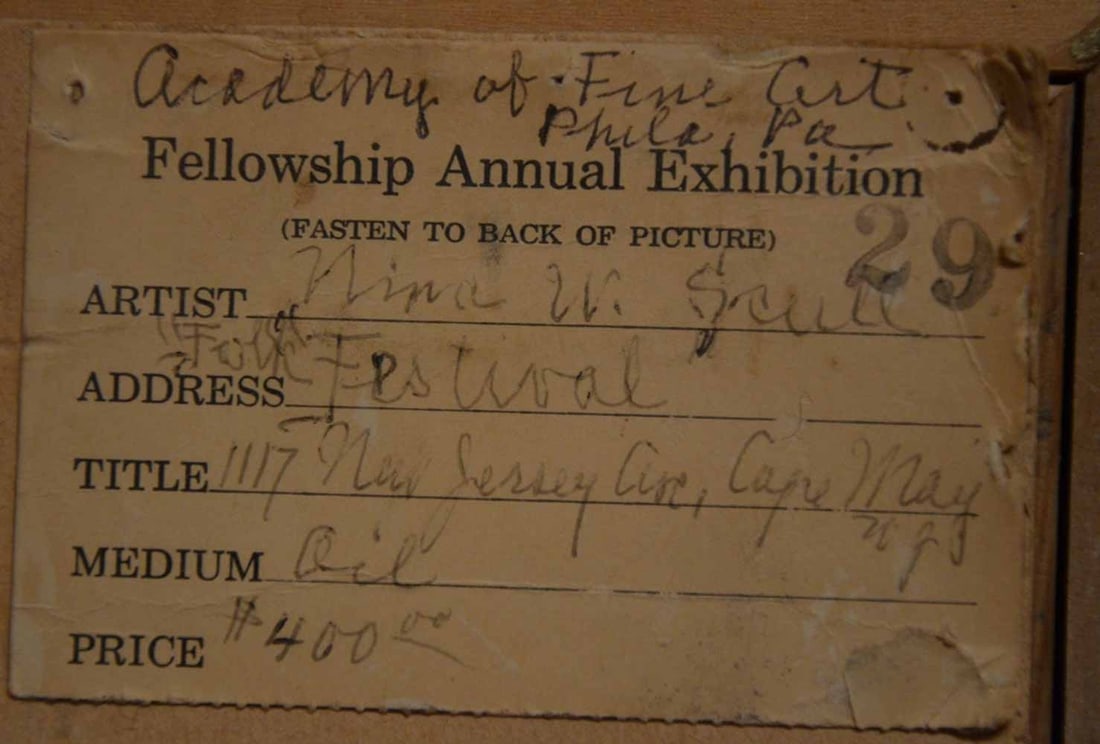 Academy of Fine Art
Phila, Pa
Fellowship Annual Exhibition
(FASTEN TO BACK OF PICTURE)
29
ARTIST Nina W. Scull
ADDRESS "Folk" Festival
TITLE 1117 New Jersey Ave, Cape May
N J
MEDIUM Oil
PRICE $400 00